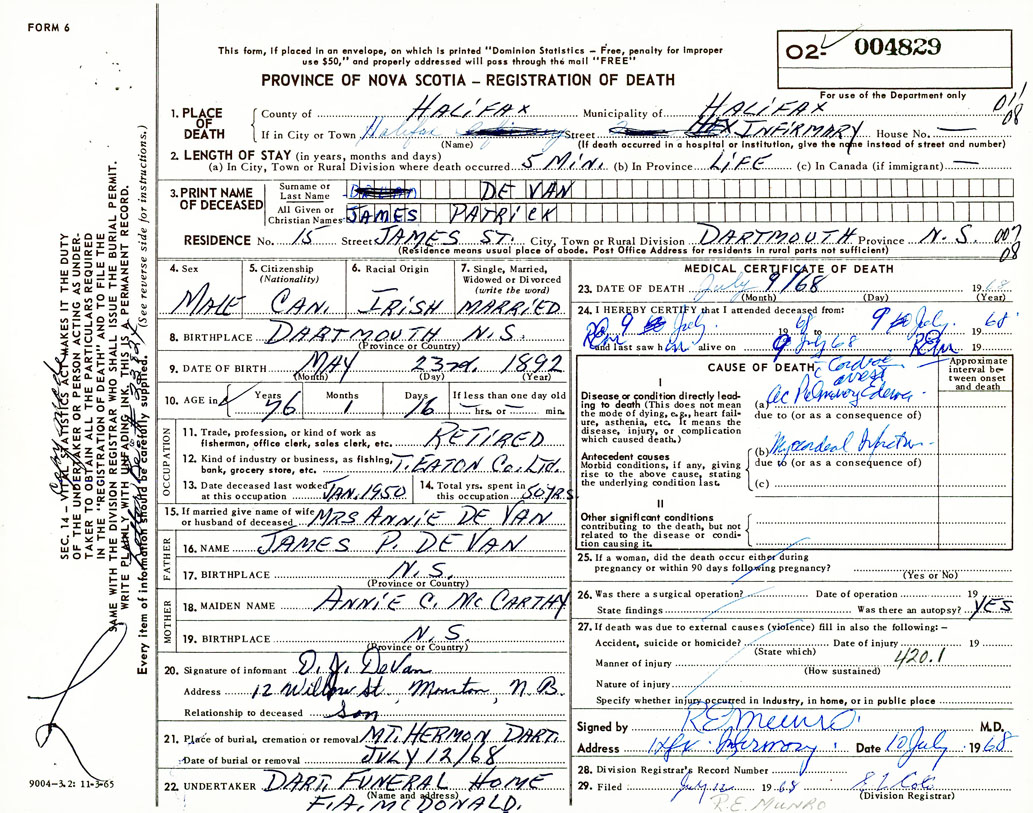 FORM 6
This form, if placed in an envelope, on which is printed "Dominion Statistics – Free, penalty for improper
use $50," and properly addressed will pass through the mail "FREE"
PROVINCE OF NOVA SCOTIA – REGISTRATION OF DEATH
02- 004829
For use of the Department only
011
08
1. PLACE OF DEATH
County of HALIFAX Municipality of HALIFAX
If in City or Town Halifax Street HFX INFIRMARY House No. —
(Name) (If death occurred in a hospital or institution, give the name instead of street and number)
2. LENGTH OF STAY (in years, months and days)
(a) In City, Town or Rural Division where death occurred 5 MIN. (b) In Province LIFE (c) In Canada (if immigrant) —
3. PRINT NAME OF DECEASED
Surname or Last Name DE VAN
All Given or Christian Names JAMES PATRICK
RESIDENCE No. 15 Street JAMES ST. City, Town or Rural Division DARTMOUTH Province N.S. 007
(Residence means usual place of abode. Post Office Address for residents in rural parts not sufficient) 08
4. Sex MALE
5. Citizenship (Nationality) CAN.
6. Racial Origin IRISH
7. Single, Married, Widowed or Divorced (write the word) MARRIED
8. BIRTHPLACE DARTMOUTH N.S.
(Province or Country)
9. DATE OF BIRTH MAY 23rd. 1892
(Month) (Day) (Year)
10. AGE in Years 76 Months 1 Days 16 If less than one day old hrs. or min.
OCCUPATION
11. Trade, profession or kind of work as fisherman, office clerk, sales clerk, etc. RETIRED
12. Kind of industry or business, as fishing, bank, grocery store, etc. T. EATON Co. Ltd.
13. Date deceased last worked at this occupation JAN. 1950
14. Total yrs. spent in this occupation 50 YRS
15. If married give name of wife or husband of deceased MRS ANNIE DE VAN
FATHER
16. NAME JAMES P. DE VAN
17. BIRTHPLACE N.S.
(Province or Country)
MOTHER
18. MAIDEN NAME ANNIE C. McCARTHY
19. BIRTHPLACE N.S.
(Province or Country)
20. Signature of informant D. J. DeVan
Address 12 Willow St. Moncton, N.B.
Relationship to deceased Son
21. Place of burial, cremation or removal MT. HERMON DART.
Date of burial or removal JULY 12/68
22. UNDERTAKER DART. FUNERAL HOME
(Name and address)
F.A. McDONALD.
MEDICAL CERTIFICATE OF DEATH
23. DATE OF DEATH July 9/68 1968
(Month) (Day) (Year)
24. I HEREBY CERTIFY that I attended deceased from:
9 July 1968 to 9 July 68
and last saw him alive on 9 July 68 REM 19
CAUSE OF DEATH
Approximate interval between onset and death
I
Disease or condition directly leading to death (This does not mean the mode of dying, e.g., heart failure, asthenia, etc. It means the disease, injury, or complication which caused death.)
c Cardiac arrest
(a) ac Pulmonary Edema
due to (or as a consequence of)
Antecedent causes
Morbid conditions, if any, giving rise to the above cause, stating the underlying condition last.
(b) Myocardial Infarction
due to (or as a consequence of)
(c)
II
Other significant conditions contributing to the death, but not related to the disease or condition causing it.
25. If a woman, did the death occur either during
pregnancy or within 90 days following pregnancy?
(Yes or No)
26. Was there a surgical operation? Date of operation 19
State findings Was there an autopsy? YES
27. If death was due to external causes (violence) fill in also the following: –
Accident, suicide or homicide? Date of injury 19
(State which)
Manner of injury 420.1
(How sustained)
Nature of injury
Specify whether injury occurred in industry, in home, or in public place
Signed by R E Munro M.D.
Address Hfx Infirmary Date 10 July 1968
28. Division Registrar's Record Number
29. Filed July 12 1968
(Division Registrar)
R.E. MUNRO
SEC. 14 – VITAL STATISTICS ACT MAKES IT THE DUTY
OF THE UNDERTAKER OR PERSON ACTING AS UNDER-
TAKER TO OBTAIN ALL THE PARTICULARS REQUIRED
IN THE "REGISTRATION OF DEATH" AND TO FILE THE
SAME WITH THE DIVISION REGISTRAR WHO SHALL ISSUE THE BURIAL PERMIT.
WRITE PLAINLY WITH UNFADING INK, THIS IS A PERMANENT RECORD.
Every item of information should be carefully supplied. (See reverse side for instructions.)
9004-3.2: 11-5-65